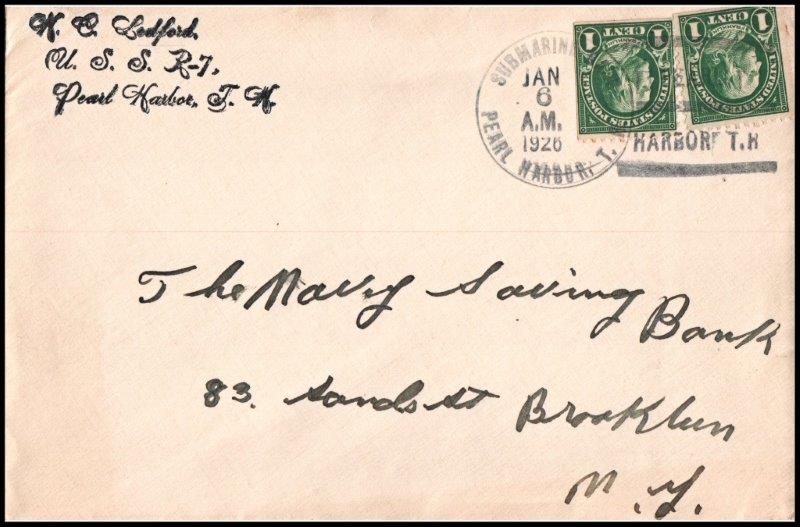 W. C. Ledford.
U. S. S. R-7,
Pearl Harbor, T. H.
SUBMARINE
JAN
6
A.M.
1926
PEARL HARBOR, T.
HARBOR T.H
1 CENT 1
UNITED STATES POSTAGE
FRANKLIN
1 CENT 1
UNITED STATES POSTAGE
FRANKLIN
The Navy Saving Bank
83. Sands St Brooklun
N. Y.